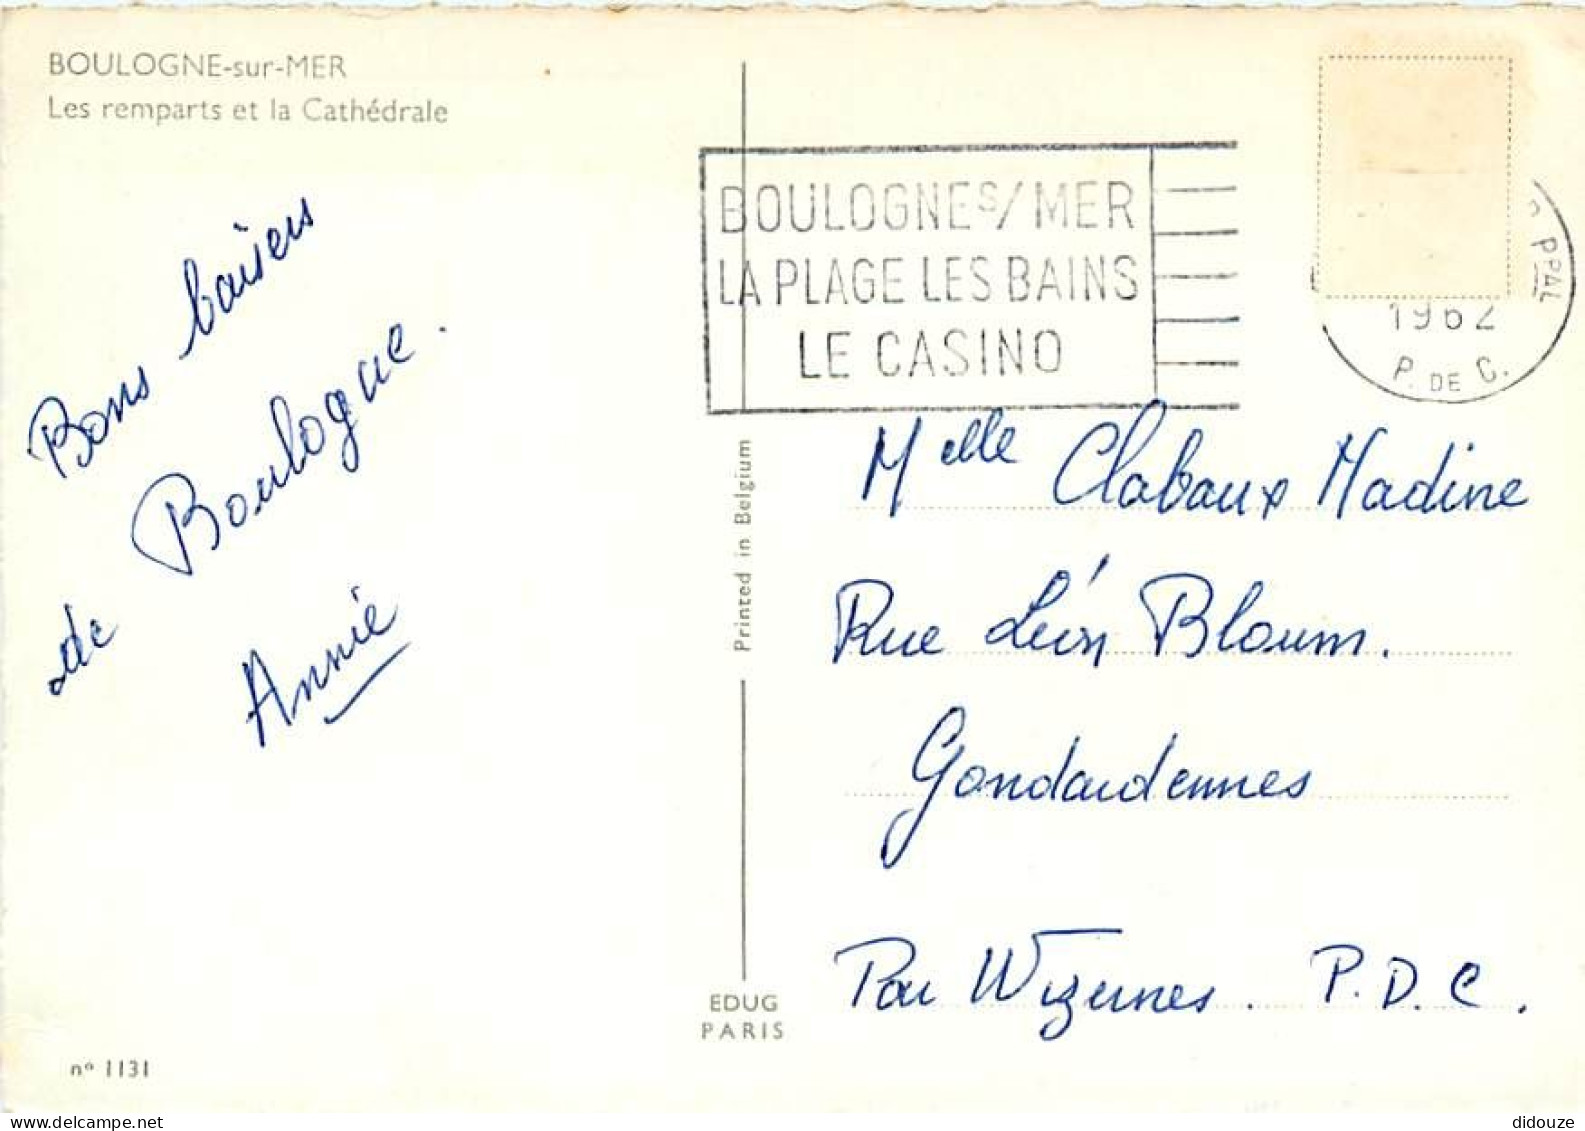 BOULOGNE-sur-MER
Les remparts et la Cathédrale
BOULOGNE S/MER
LA PLAGE LES BAINS
LE CASINO
PPAL
1962
P. DE C.
Bons baisers
de Boulogne.
Annie
Printed in Belgium
Melle Clabaux Nadine
Rue Léon Bloum.
Gondardennes
Par Wizernes. P.D.C.
EDUG
PARIS
nº 1131
didouze